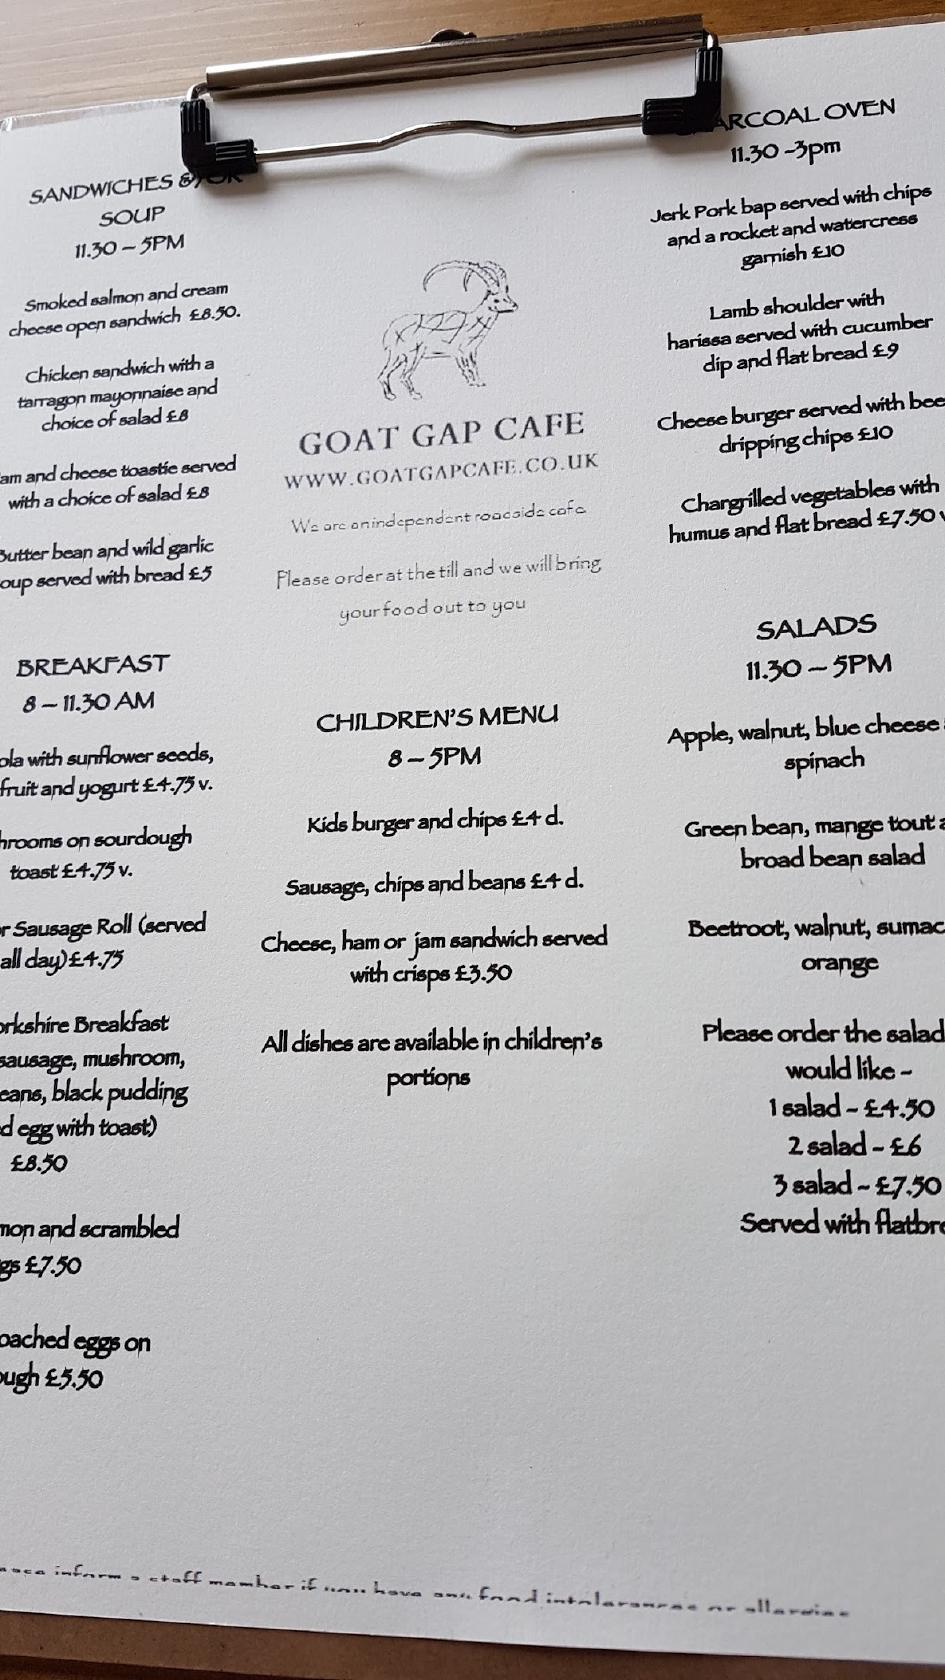 SANDWICHES &/OR
SOUP
11.30 – 5PM
Smoked salmon and cream
cheese open sandwich £8.50.
Chicken sandwich with a
tarragon mayonnaise and
choice of salad £8
am and cheese toastie served
with a choice of salad £8
Butter bean and wild garlic
oup served with bread £5
BREAKFAST
8 – 11.30 AM
ola with sunflower seeds,
fruit and yogurt £4.75 v.
hrooms on sourdough
toast £4.75 v.
r Sausage Roll (served
all day) £4.75
orkshire Breakfast
sausage, mushroom,
eans, black pudding
d egg with toast)
£8.50
mon and scrambled
gs £7.50
oached eggs on
ough £5.50
GOAT GAP CAFE
WWW.GOATGAPCAFE.CO.UK
We are an independent roadside cafe
Please order at the till and we will bring
your food out to you
CHILDREN'S MENU
8 – 5PM
Kids burger and chips £4 d.
Sausage, chips and beans £4 d.
Cheese, ham or jam sandwich served
with crisps £3.50
All dishes are available in children's
portions
ARCOAL OVEN
11.30 -3pm
Jerk Pork bap served with chips
and a rocket and watercress
garnish £10
Lamb shoulder with
harissa served with cucumber
dip and flat bread £9
Cheese burger served with bee
dripping chips £10
Chargrilled vegetables with
humus and flat bread £7.50 v
SALADS
11.30 – 5PM
Apple, walnut, blue cheese
spinach
Green bean, mange tout a
broad bean salad
Beetroot, walnut, sumac
orange
Please order the salad
would like -
1 salad - £4.50
2 salad - £6
3 salad - £7.50
Served with flatbre
ease inform a staff member if you have any food intolerances or allergies